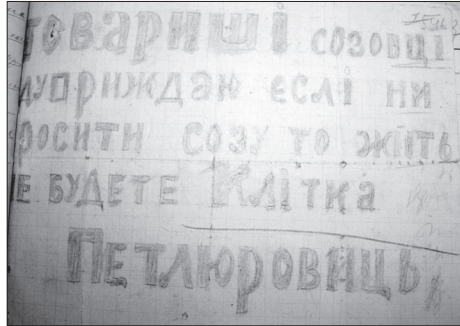 товариші созовці
дуприждаю еслі ни
росити созу то жить
е будете Клітка
Петлюровиць